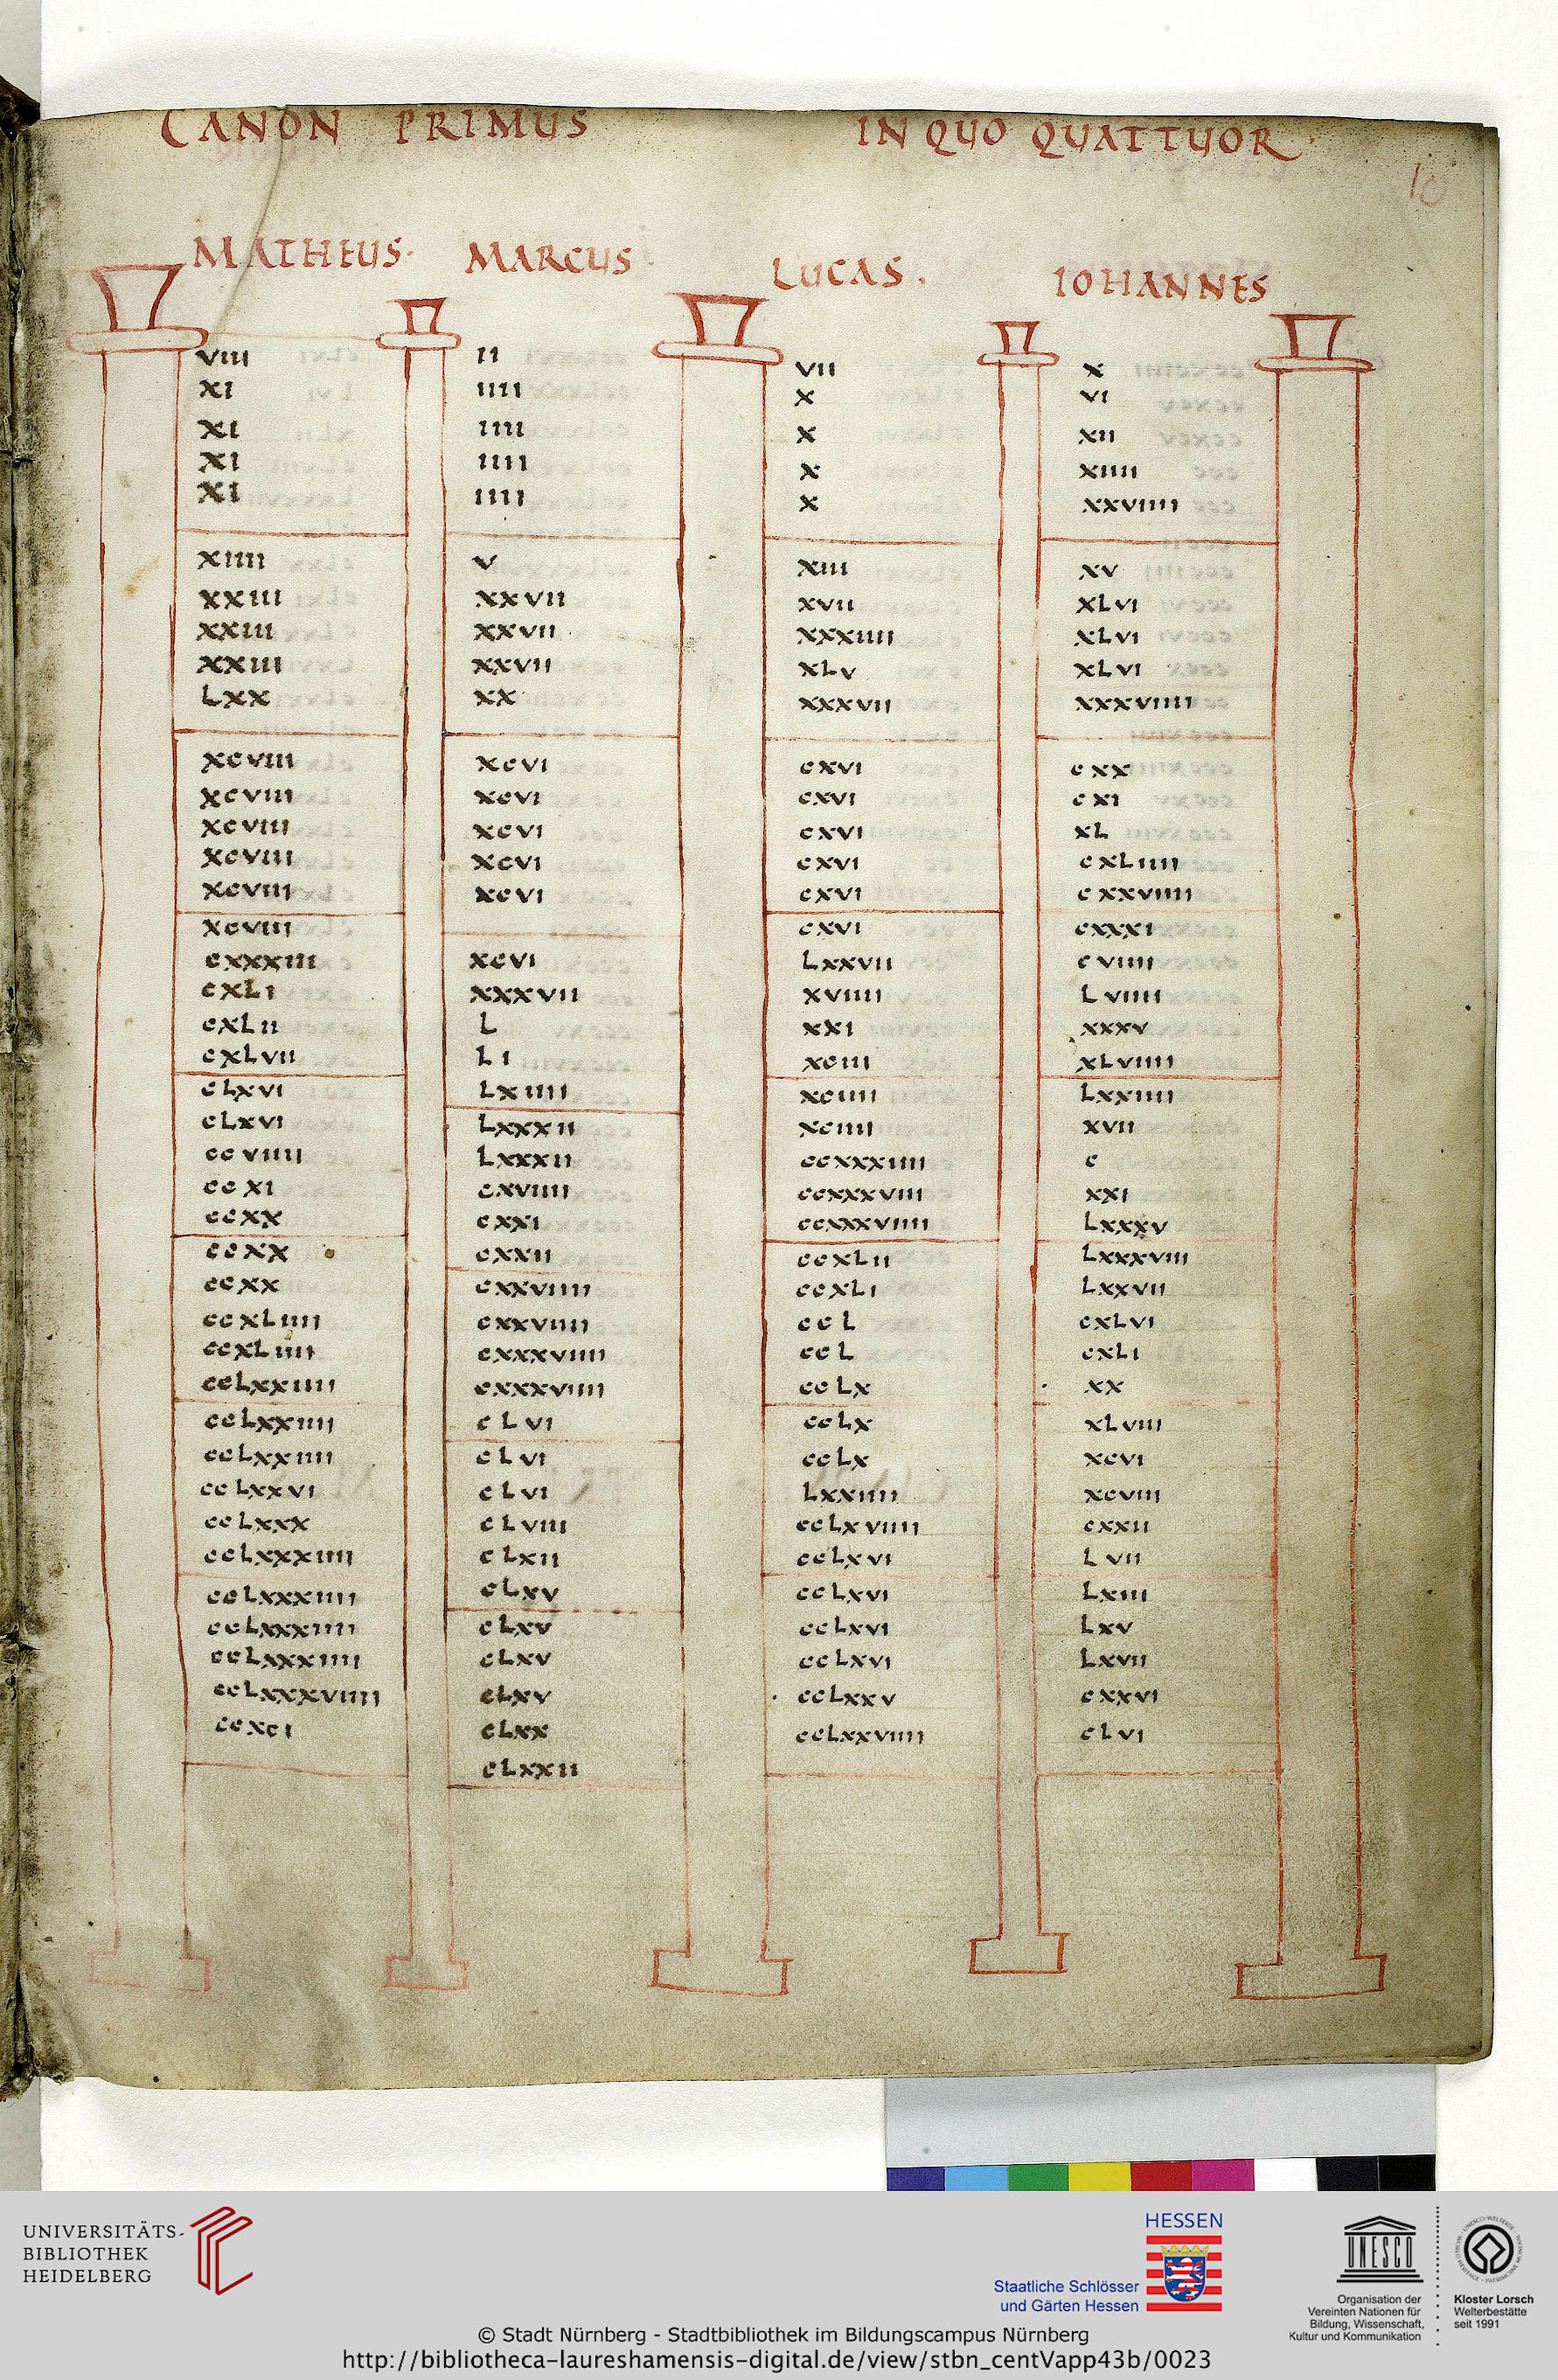 CANON PRIMUS IN QUO QUATTUOR
10
MATHEUS· MARCUS· LUCAS· IOHANNES
VIII II VII X
XI IIII X VI
XI IIII X XII
XI IIII X XIIII
XI IIII X XXVIIII
XIIII V XIII XV
XXIII XXVII XVII XLVI
XXIII XXVII XXXIIII XLVI
XXIII XXVII XLV XLVI
LXX XX XXXVII XXXVIIII
XCVIII XCVI CXVI CXX
XCVIII XCVI CXVI CXI
XCVIII XCVI CXVI XL
XCVIII XCVI CXVI CXLIIII
XCVIII XCVI CXVI CXXVIIII
XCVIII XCVI CXVI CXXXI
CXXXIII XXXVII LXXVII CVIIII
CXLI L XVIIII LVIIII
CXLII LI XXI XXXV
CXLVII LXIIII XCIII XLVIIII
CLXVI LXXXII XCIIII LXXIIII
CLXVI LXXXII XCIIII XVII
CCVIIII CXVIIII CCXXXIIII C
CCXI CXXI CCXXXVIII XXI
CCXX CXXII CCXXXVIIII LXXXV
CCXX CXXVIIII CCXLII LXXXVIII
CCXX CXXVIIII CCXLI LXXVII
CCXLIIII CXXXVIIII CCL CXLVI
CCXLIIII CXXXVIIII CCL CXLI
CCLXXIIII CLVI CCLX XX
CCLXXIIII CLVI CCLX XLVIII
CCLXXIIII CLVI CCLX XCVI
CCLXXVI CLVIII LXXIIII XCVIII
CCLXXX CLXII CCLXVIIII CXXII
CCLXXXIIII CLXV CCLXVI LVII
CCLXXXIIII CLXV CCLXVI LXIII
CCLXXXIIII CLXV CCLXVI LXV
CCLXXXIIII CLXV CCLXVI LXVII
CCLXXXVIIII CLXX CCLXXV CXXVI
CCXCI CLXXII CCLXXVIIII CLVI
UNIVERSITÄTS-
BIBLIOTHEK
HEIDELBERG
HESSEN
Staatliche Schlösser
und Gärten Hessen
UNESCO
Organisation der
Vereinten Nationen für
Bildung, Wissenschaft,
Kultur und Kommunikation
Kloster Lorsch
Welterbestätte
seit 1991
© Stadt Nürnberg - Stadtbibliothek im Bildungscampus Nürnberg
http://bibliotheca-laureshamensis-digital.de/view/stbn_centVapp43b/0023